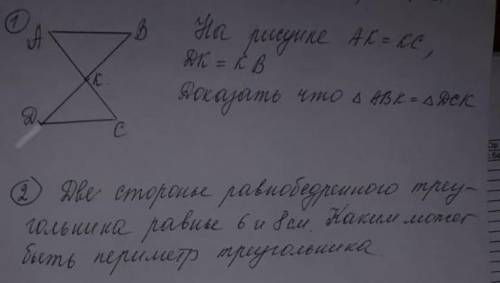 ① A B На рисунке AK = KC,
K DK = KB
D C Доказать что △ ABK = △ DCK
② Две стороны равнобедренного треу-
гольника равны 6 и 8 см. Каким может
быть периметр треугольника